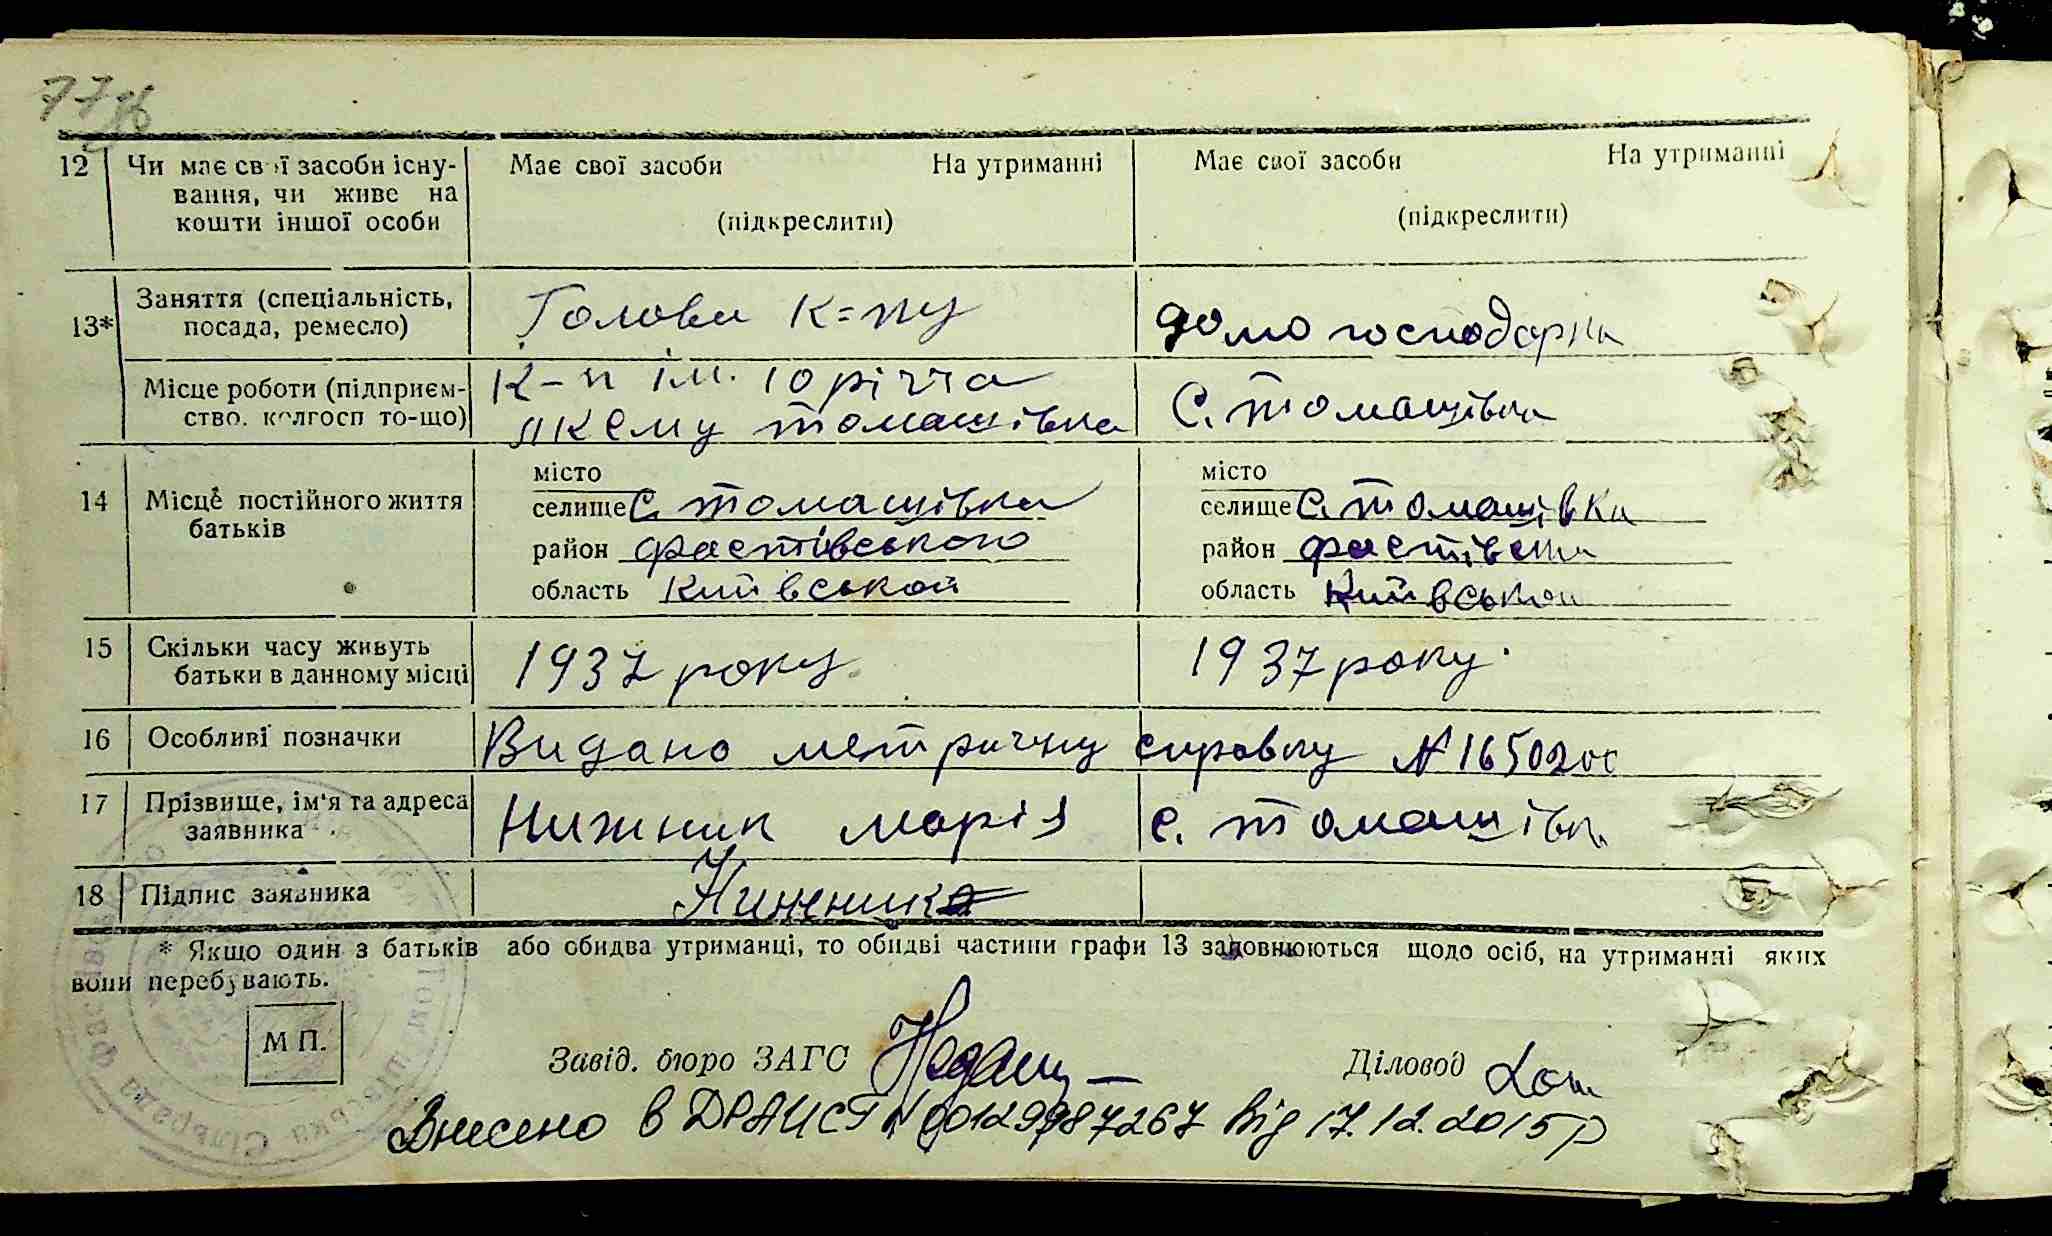 77зв
12 Чи має свої засоби існу- Має свої засоби На утриманні Має свої засоби На утриманні
вання, чи живе на
кошти іншої особи (підкреслити) (підкреслити)
13* Заняття (спеціальність, Голова к=пу домо господарка
посада, ремесло)
Місце роботи (підприєм- К-п ім. 10 річча с. Томашівка
ство. колгосп то-що) ЛКСМУ Томашівка
14 Місце постійного життя місто місто
батьків селище с. Томашівка селище с. Томашівка
район Фастівського район Фастівськ
область Київської область Київської
15 Скільки часу живуть 1937 року 1937 року.
батьки в данному місці
16 Особливі позначки Видано метричну справку № 165020
17 Прізвище, ім'я та адреса Нижник Марія с. Томашівка
заявника
18 Підпис заявника Нижник
* Якщо один з батьків або обидва утриманці, то обидві частини графи 13 заповнюються щодо осіб, на утриманні яких
вони перебувають.
М П.
Завід. бюро ЗАГС Діловод
Внесено в ДРАЦСГ № 00129987267 від 17.12.2015р